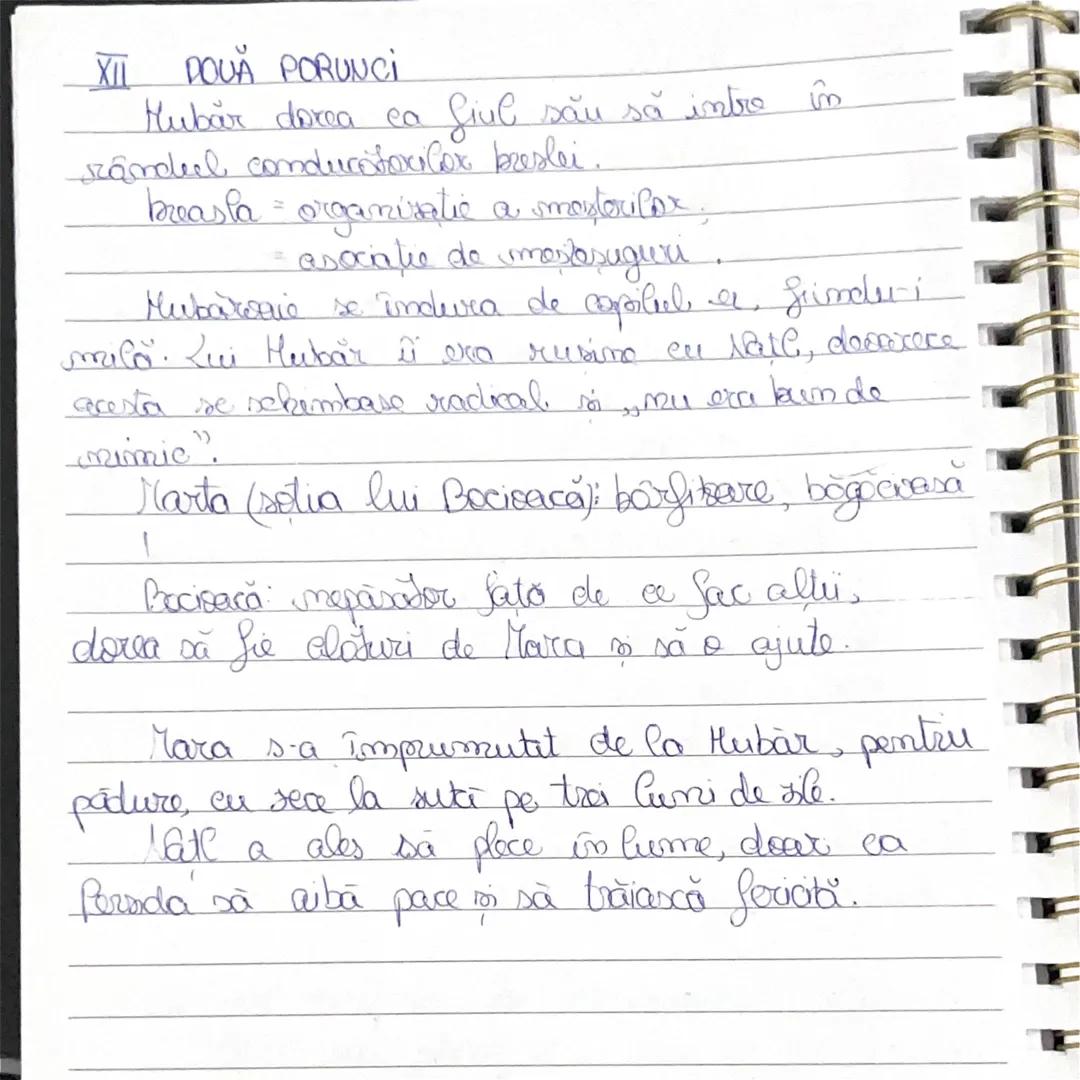 XII DOUĂ PORUNCI
Hubăr dorea ca fiul său să intre în
rândul conducătorilor breslei.
breasla = organizație a meșterilor;
= asociație de meșteșuguri.
Hubăroaie se îndura de copilul ei, fiindu-i
milă. Lui Hubăr îi era rușine cu Națl, deoarece
acesta se schimbase radical și „nu era bun de
nimic".
Marta (soția lui Bocioacă): bârfitoare, băgăcioasă
|
Bocioacă: nepăsător față de ce fac alții,
dorea să fie alături de Mara și să o ajute.
Mara s-a împrumutat de la Hubăr, pentru
pădure, cu zece la sută pe trei luni de zile.
Națl a ales să plece în lume, doar ca
Persida să aibă pace și să trăiască fericită.